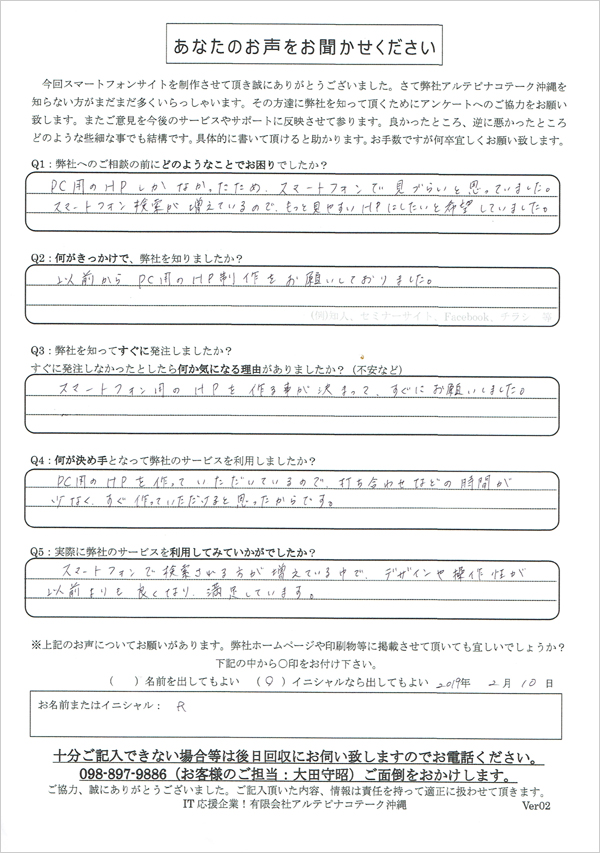 あなたのお声をお聞かせください
今回スマートフォンサイトを制作させて頂き誠にありがとうございました。さて弊社アルテピナコテーク沖縄を
知らない方がまだまだ多くいらっしゃいます。その方達に弊社を知って頂くためにアンケートへのご協力をお願い
致します。またご意見を今後のサービスやサポートに反映させて参ります。良かったところ、逆に悪かったところ
どのような些細な事でも結構です。具体的に書いて頂けると助かります。お手数ですが何卒宜しくお願い致します。
Q1：弊社へのご相談の前にどのようなことでお困りでしたか？
PC用のHPしかなかったため、スマートフォンで見づらいと思っていました。
スマートフォン検索が増えているので、もっと見やすいHPにしたいと希望していました。
Q2：何がきっかけで、弊社を知りましたか？
以前からPC用のHP制作をお願いしておりました。
(例)知人、セミナーサイト、Facebook、チラシ 等
Q3：弊社を知ってすぐに発注しましたか？
すぐに発注しなかったとしたら何か気になる理由がありましたか？（不安など）
スマートフォン用のHPを作る事が決まって、すぐにお願いしました。
Q4：何が決め手となって弊社のサービスを利用しましたか？
PC用のHPを作っていただいているので、打ち合わせなどの時間が
少なく、すぐ作っていただけると思ったからです。
Q5：実際に弊社のサービスを利用してみていかがでしたか？
スマートフォンで検索される方が増えている中で、デザインや操作性が
以前よりも良くなり、満足しています。
※上記のお声についてお願いがあります。弊社ホームページや印刷物等に掲載させて頂いても宜しいでしょうか？
下記の中から〇印をお付け下さい。
（　）名前を出してもよい （〇）イニシャルなら出してもよい 2019年 2月 10日
お名前またはイニシャル： R
十分ご記入できない場合等は後日回収にお伺い致しますのでお電話ください。
098-897-9886（お客様のご担当：大田守昭）ご面倒をおかけします。
ご協力、誠にありがとうございました。ご記入頂いた内容、情報は責任を持って適正に扱わせて頂きます。
IT応援企業！有限会社アルテピナコテーク沖縄 Ver02